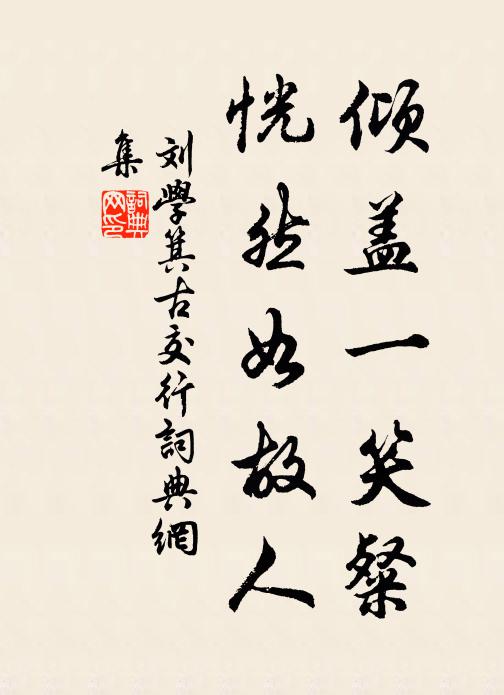 倾盖一笑粲
恍然如故人
刘學箕古交行詞典網
集
詞典网印